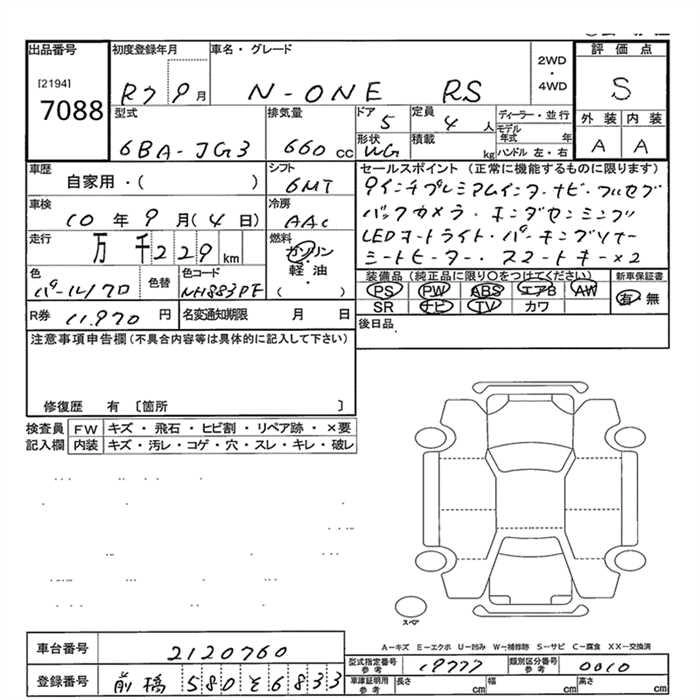 出品番号
[2194]
7088
初度登録年月
R7 9月
車名・グレード
N-ONE RS
2WD
・
4WD
評価点
S
外装 内装
A A
型式
6BA-JG3
排気量
660 cc
ドア
5
定員
4 人
形状
WG
積載
kg
ディーラー・並行
モデル年式 年
ハンドル 左・右
車歴
自家用・( )
シフト
6MT
セールスポイント(正常に機能するものに限ります)
9インチプレミアムインターナビ・フルセグ
バックカメラ・ホンダセンシング
LEDオートライト・パーキングソナー
シートヒーター・スマートキー×2
車検
10年9月(4日)
冷房
AAC
走行
万 千 229 km
燃料
ガソリン
・
軽油
( )
色
パール/クロ
色替
色コード
NH883PF
装備品(純正品に限り○をつけてください)
PS PW ABS エアB AW
SR ナビ TV カワ
新車保証書
有・無
R券 11,970 円
名変通知期限 月 日
後日品
注意事項申告欄(不具合内容等は具体的に記入して下さい)
修復歴 有 〔箇所 〕
検査員記入欄
FW キズ・飛石・ヒビ割・リペア跡・×要
内装 キズ・汚レ・コゲ・穴・スレ・キレ・破レ
スペア
A－キズ E－エクボ U－凹み W－補修跡 S－サビ C－腐食 XX－交換済
車台番号 2120760
登録番号 前橋 580 そ 6833
型式指定番号 参考 19777
類別区分番号 参考 0010
車庫証明用 参考 長さ cm 幅 cm 高さ cm